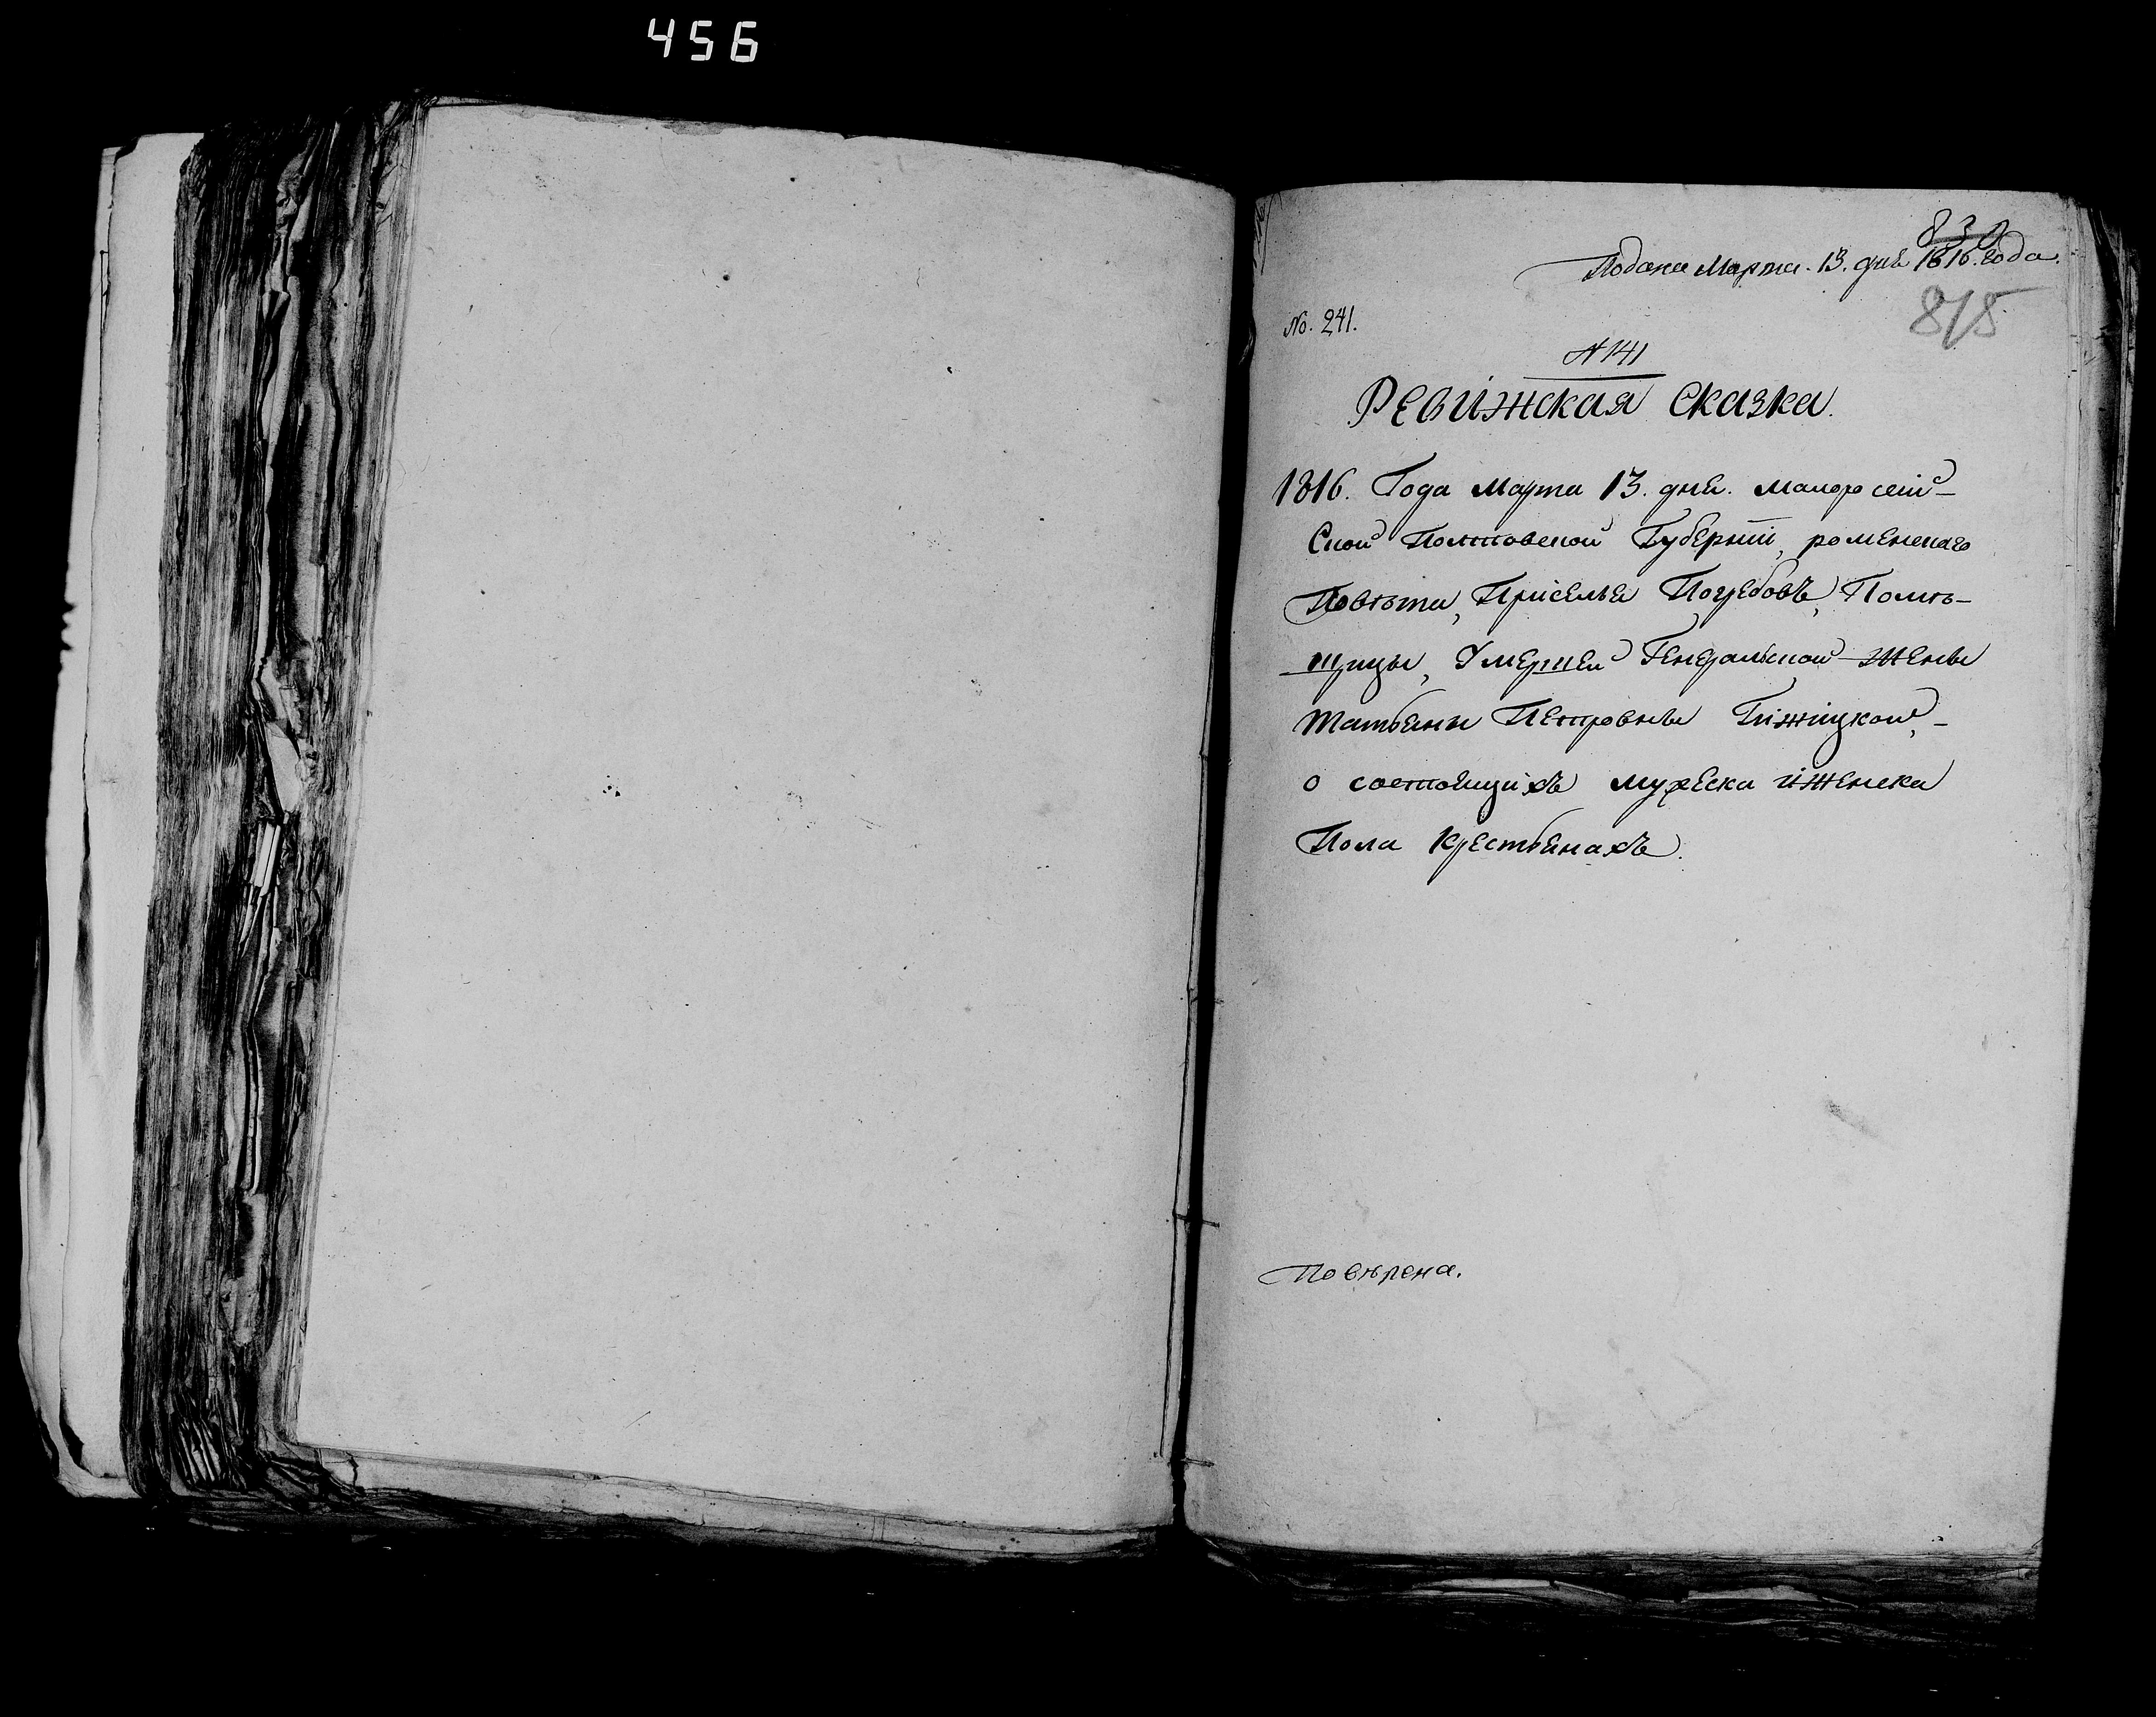 456
830
Подана Марта. 13. дня 1816. года.
875
No. 241.
N 141
Ревижская Сказка.
1816. Года Марта 13. дня. Малоросій-
Скои Полтовской Губерніи, роменскаго
Повѣта, Приселья Погребовъ, Помѣ-
щицы, Умершеи Генеральской Жены
Татьяны Петровны Гижицкой, -
о состоящихъ мужеска и женска
Пола Крестьянахъ.
Повѣрена.